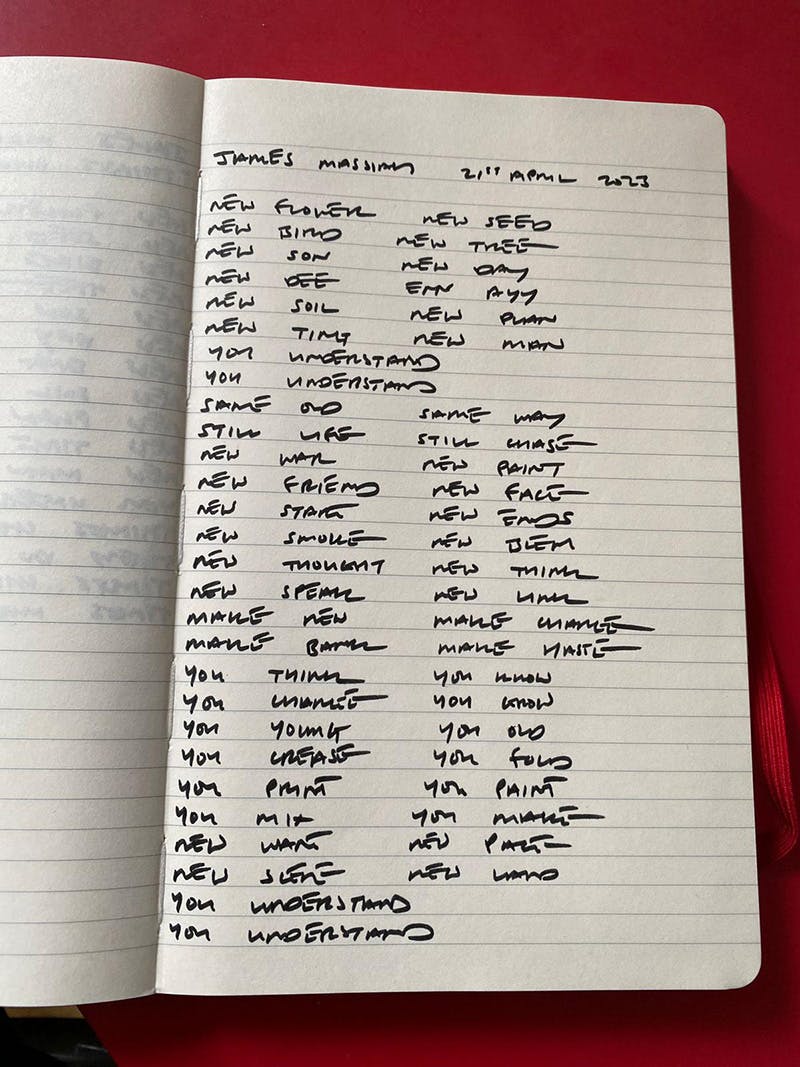 JAMES MASSIAH 21ST APRIL 2023
NEW FLOWER NEW SEED
NEW BIRD NEW TREE
NEW SON NEW DAY
NEW DEE ENN AYY
NEW SOIL NEW PLAN
NEW TING NEW MAN
YOU UNDERSTAND
YOU UNDERSTAND
SAME OLD SAME WAY
STILL LIFE STILL CHASE
NEW WAR NEW PAINT
NEW FRIEND NEW FACE
NEW START NEW ENDS
NEW SMOKE NEW BLEM
NEW THOUGHT NEW THINK
NEW SPEAK NEW LINK
MAKE NEW MAKE CHANGE
MAKE BANK MAKE HASTE
YOU THINK YOU KNOW
YOU CHANGE YOU GROW
YOU YOUNG YOU OLD
YOU CREASE YOU FOLD
YOU PRINT YOU PAINT
YOU MIX YOU MAKE
NEW WANT NEW PAGE
NEW SCENE NEW LAND
YOU UNDERSTAND
YOU UNDERSTAND